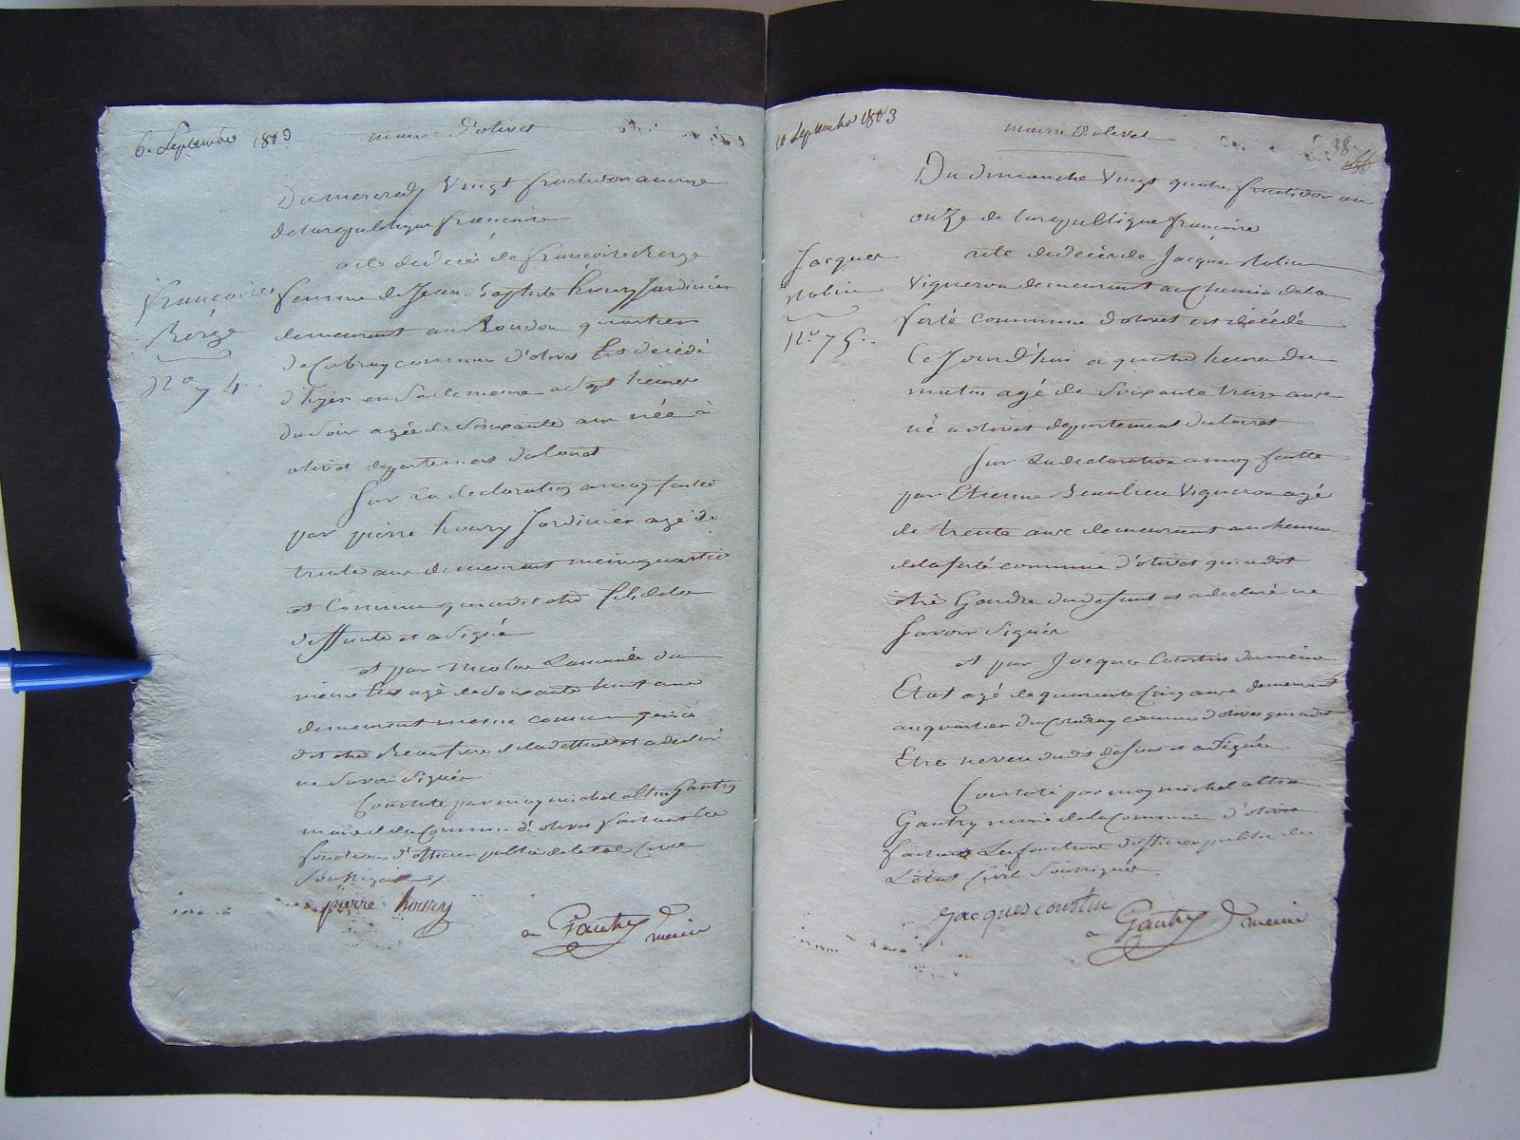 6 Septembre 1803
mairie d'olivet
Du mercredy Vingt fructidor an onze
de la republique francaise
acte de decés de francoise Bergé
femme de Jean Baptiste houry Jardinier
demeurant au Rondon quartier
de Cobray commune d'olivet Est decédé
d'hyer en sa demeure a Sept heures
du Soir agée de Soixante ans née à
olivet departement du Loiret
Sur La declaration a moy faitte
par pierre houry Jardinier agé de
trente ans demeurant meme quartier
et Commune qui a dit etre fils de la
deffunte et a Signé
et par Nicolas Lamirale du
meme Etat agé de Soixante huit ans
demeurant meme commune qui a
dit etre Beaufrere de la deffunte et a declaré
ne Savoir Signer
Constaté par moy michel Gautry
maire de la Commune d'olivet faisant les
fonctions d'officier public de l'etat Civil
Soussigné
pierre houry
Gautry maire
francoise
Bergé
No 74
10 Septembre 1803
mairie d'olivet
38
Du dimanche Vingt quatre fructidor an
onze de la republique francaise
acte de decés de Jacques Robin
Vigneron demeurant au Chemin de la
ferté commune d'olivet est décédé
Ce Jourd'hui a quatre heures du
matin agé de Soixante treize ans
né a olivet departement du Loiret
Sur La declaration a moy faitte
par Etienne Beaulieu Vigneron agé
de trente ans demeurant au chemin
de la ferté commune d'olivet qui a dit
etre Gendre du defunt et a declaré ne
Savoir Signer
et par Jacques Coustin du meme
Etat agé de quarente Cinq ans demeurant
au quartier du commune d'olivet qui a dit
Etre neveu dudit defunt et a Signé
Constaté par moy michel
Gautry maire de la Commune d'olivet
faisant Les fonctions d'officier public de
L'état Civil Soussigné
Jacques coustin
Gautry maire
Jacques
Robin
No 75